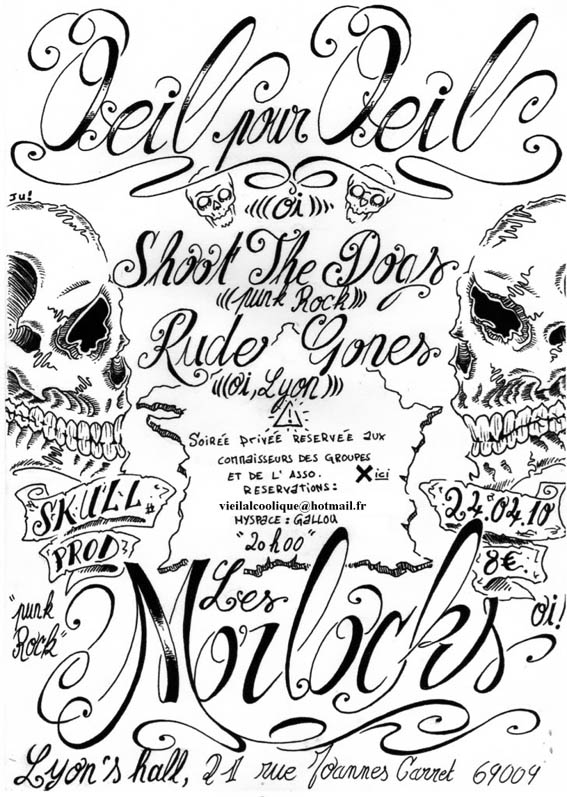 Oeil pour Oeil
Ju!
(((oi)))
Shoot The Dogs
(((punk Rock)))
Rude Gones
(((oi, Lyon)))
!
SOIRÉE PRIVÉE RESERVÉE AUX
CONNAISSEURS DES GROUPES
ET DE L' ASSO.
X ici
RESERVATIONS:
vieilalcoolique@hotmail.fr
MYSPACE: GALLOU
"20h00"
SKULL
PROD
24.04.10
8€.
"punk Rock"
oi!
Les
Morlocks
Lyon's hall, 21 rue Joannes Carret 69009